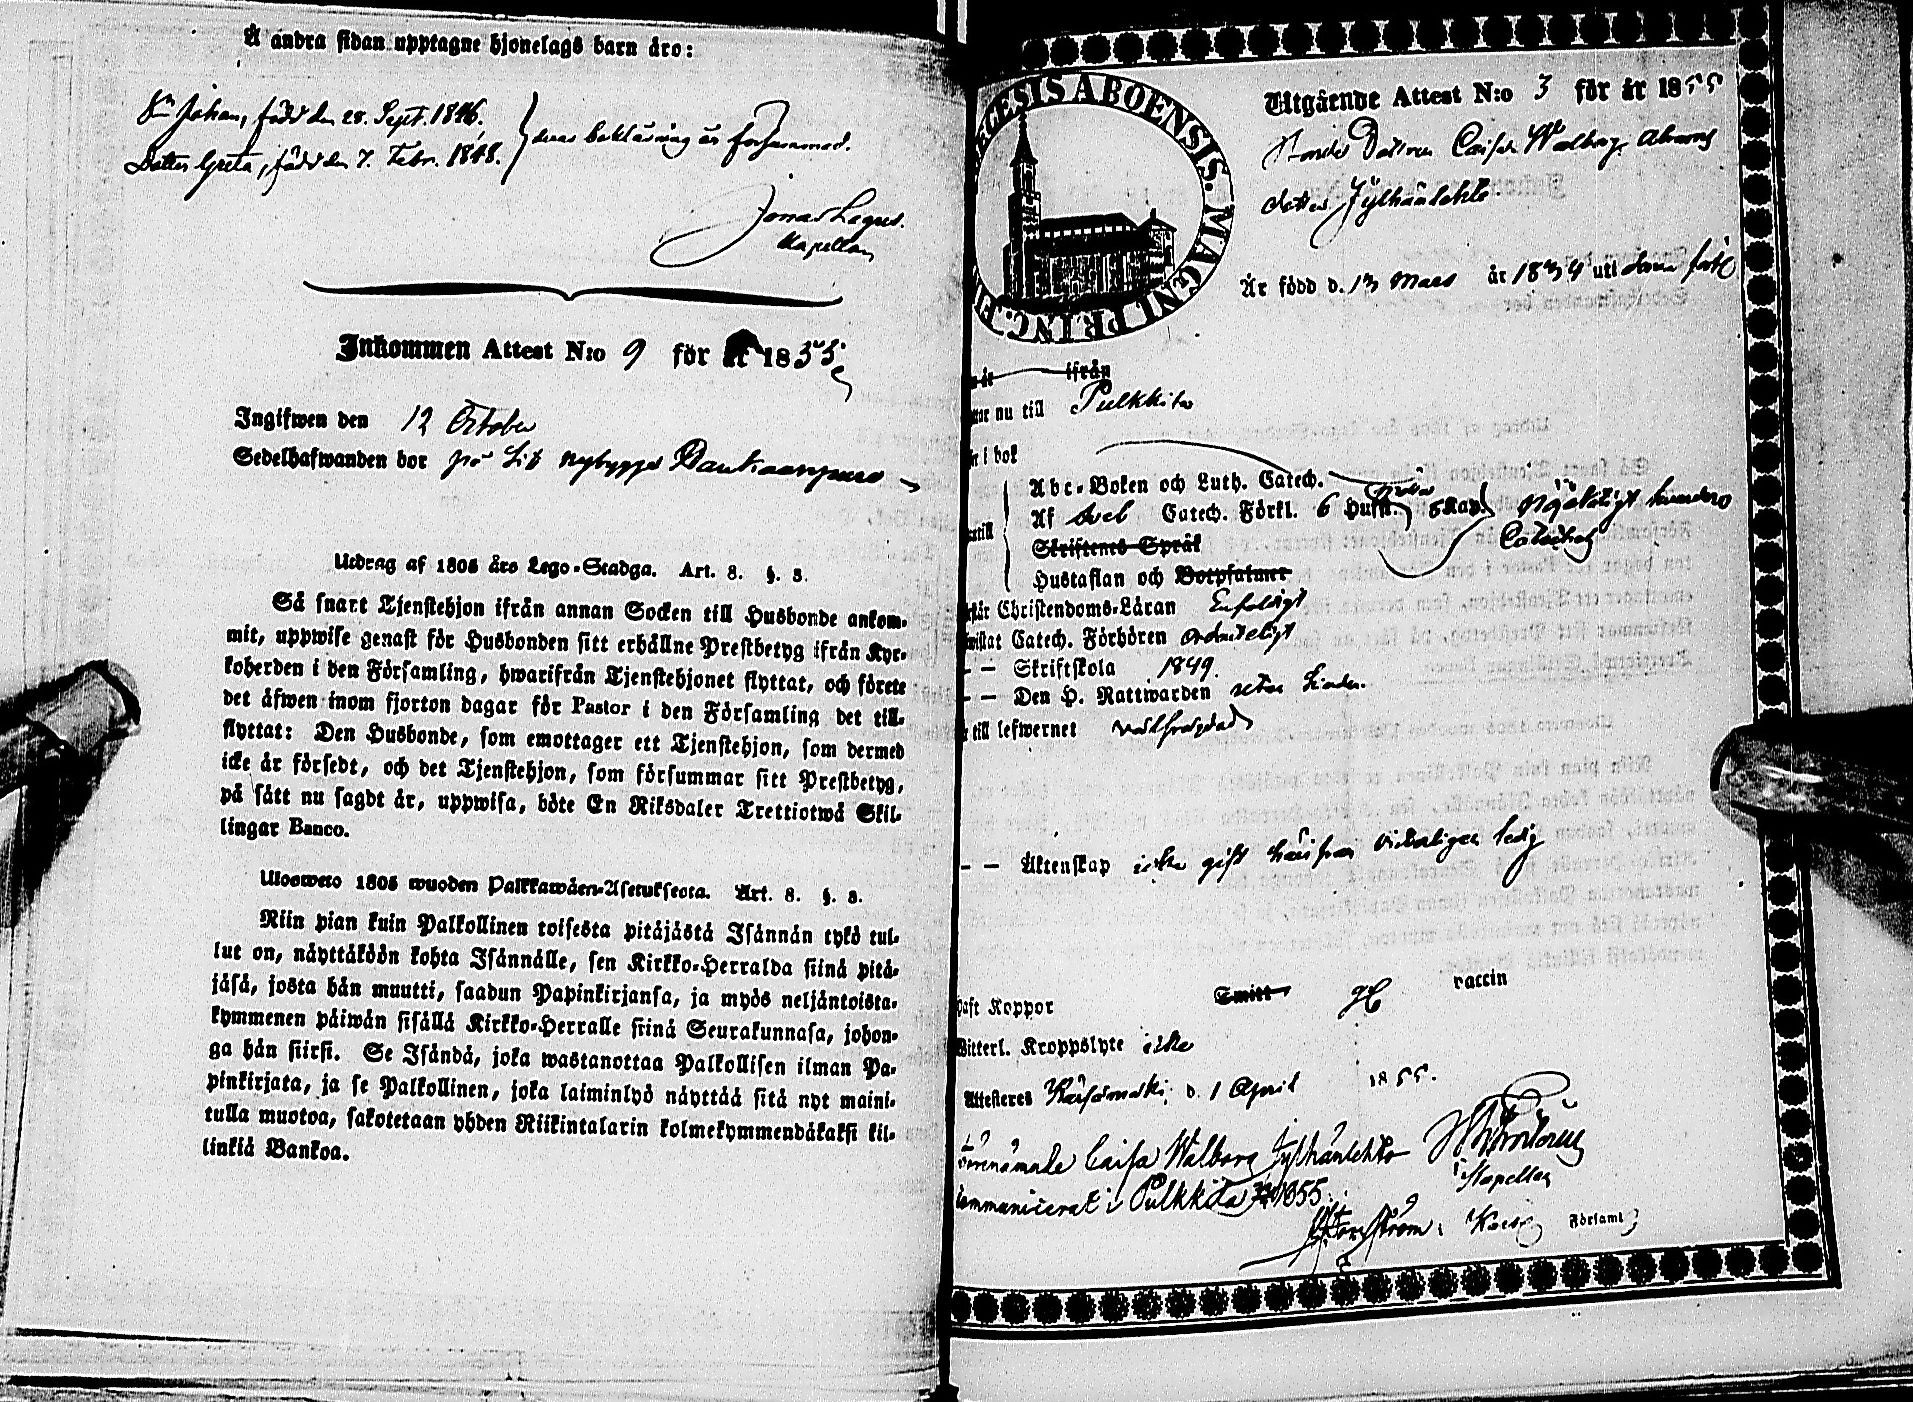 Å andra sidan upptagne hjonelags barn äro:
Sn Johan, född den 28. Sept. 1846.
Dotter Greta, född den 7. Febr. 1848.
deras beklädning är försvarad.
Jonas Lagus.
Kapellan
Inkommen Attest N:o 9 för år 1855
Ingifwen den 12 October
Sedelhafwanden bor på sit nybygge
Utdrag af 1805 års Lego-Stadga. Art. 8. §. 3.
Så snart Tjenstehjon ifrån annan Socken till Husbonde ankom-
mit, uppwise genast för Husbonden sitt erhållne Prestbetyg ifrån Kyr-
koherden i den Församling, hwarifrån Tjenstehjonet flyttat, och förete
det äfwen inom fjorton dagar för Pastor i den Församling det till-
flyttat: Den Husbonde, som emottager ett Tjenstehjon, som dermed
icke är försedt, och det Tjenstehjon, som försummar sitt Prestbetyg,
på sätt nu sagdt är, uppwisa, böte En Riksdaler Trettiotwå Skil-
lingar Banco.
Ulosweto 1805 wuoden Palkkawäen-Asetuksesta. Art. 8. §. 3.
Niin pian kuin Palkollinen toisesta pitäjästä Isännän tykö tul-
lut on, näyttäköön kohta Isännälle, sen Kirkko-Herralda siinä pitä-
jäsä, josta hän muutti, saadun Papinkirjansa, ja myös neljäntoista-
kymmenen päiwän sisällä Kirkko-Herralle siinä Seurakunnasa, johon-
ga hän siirsi. Se Isändä, joka wastanottaa Palkollisen ilman Pa-
pinkirjata, ja se Palkollinen, joka laiminlyö näyttää sitä nyt maini-
tulla muotoa, sakotetaan yhden Riikintalarin kolmekymmendäkaksi kil-
linkiä Bankoa.
ECGESIS ABOENSIS. MAGNI PRINC. FI
Utgående Attest N:o 3 för år 1855
Bonde Dottren Caisa Walborg Abrams
dotter Jylhänlehto
Är född d. 13 Mars år 1834 uti
år ifrån
nu till Pulkkila
i bok
Abc-Boken och Luth. Catech.
Af Sveb Catech. Förkl. 6 Hufst. Nöjaktigt
Skriftenes Språk
Hustaflan och Botpsalmer
Christendoms-Läran Enfaldigt
Catech. Förhören ordentligt
– – Skriftskola 1849.
– – Den H. Nattwarden
till lefwernet välfrejdad
– – Äktenskap icke gift ledig
haft Koppor Smitt vaccin
Witterl. Kroppslyte icke
Attesteres Kärsämäki, d. 1 April 1855.
Förenämnde Caisa Walborg Jylhänlehto
Communicerat i Pulkkila 1855.
Kapellan
Församl